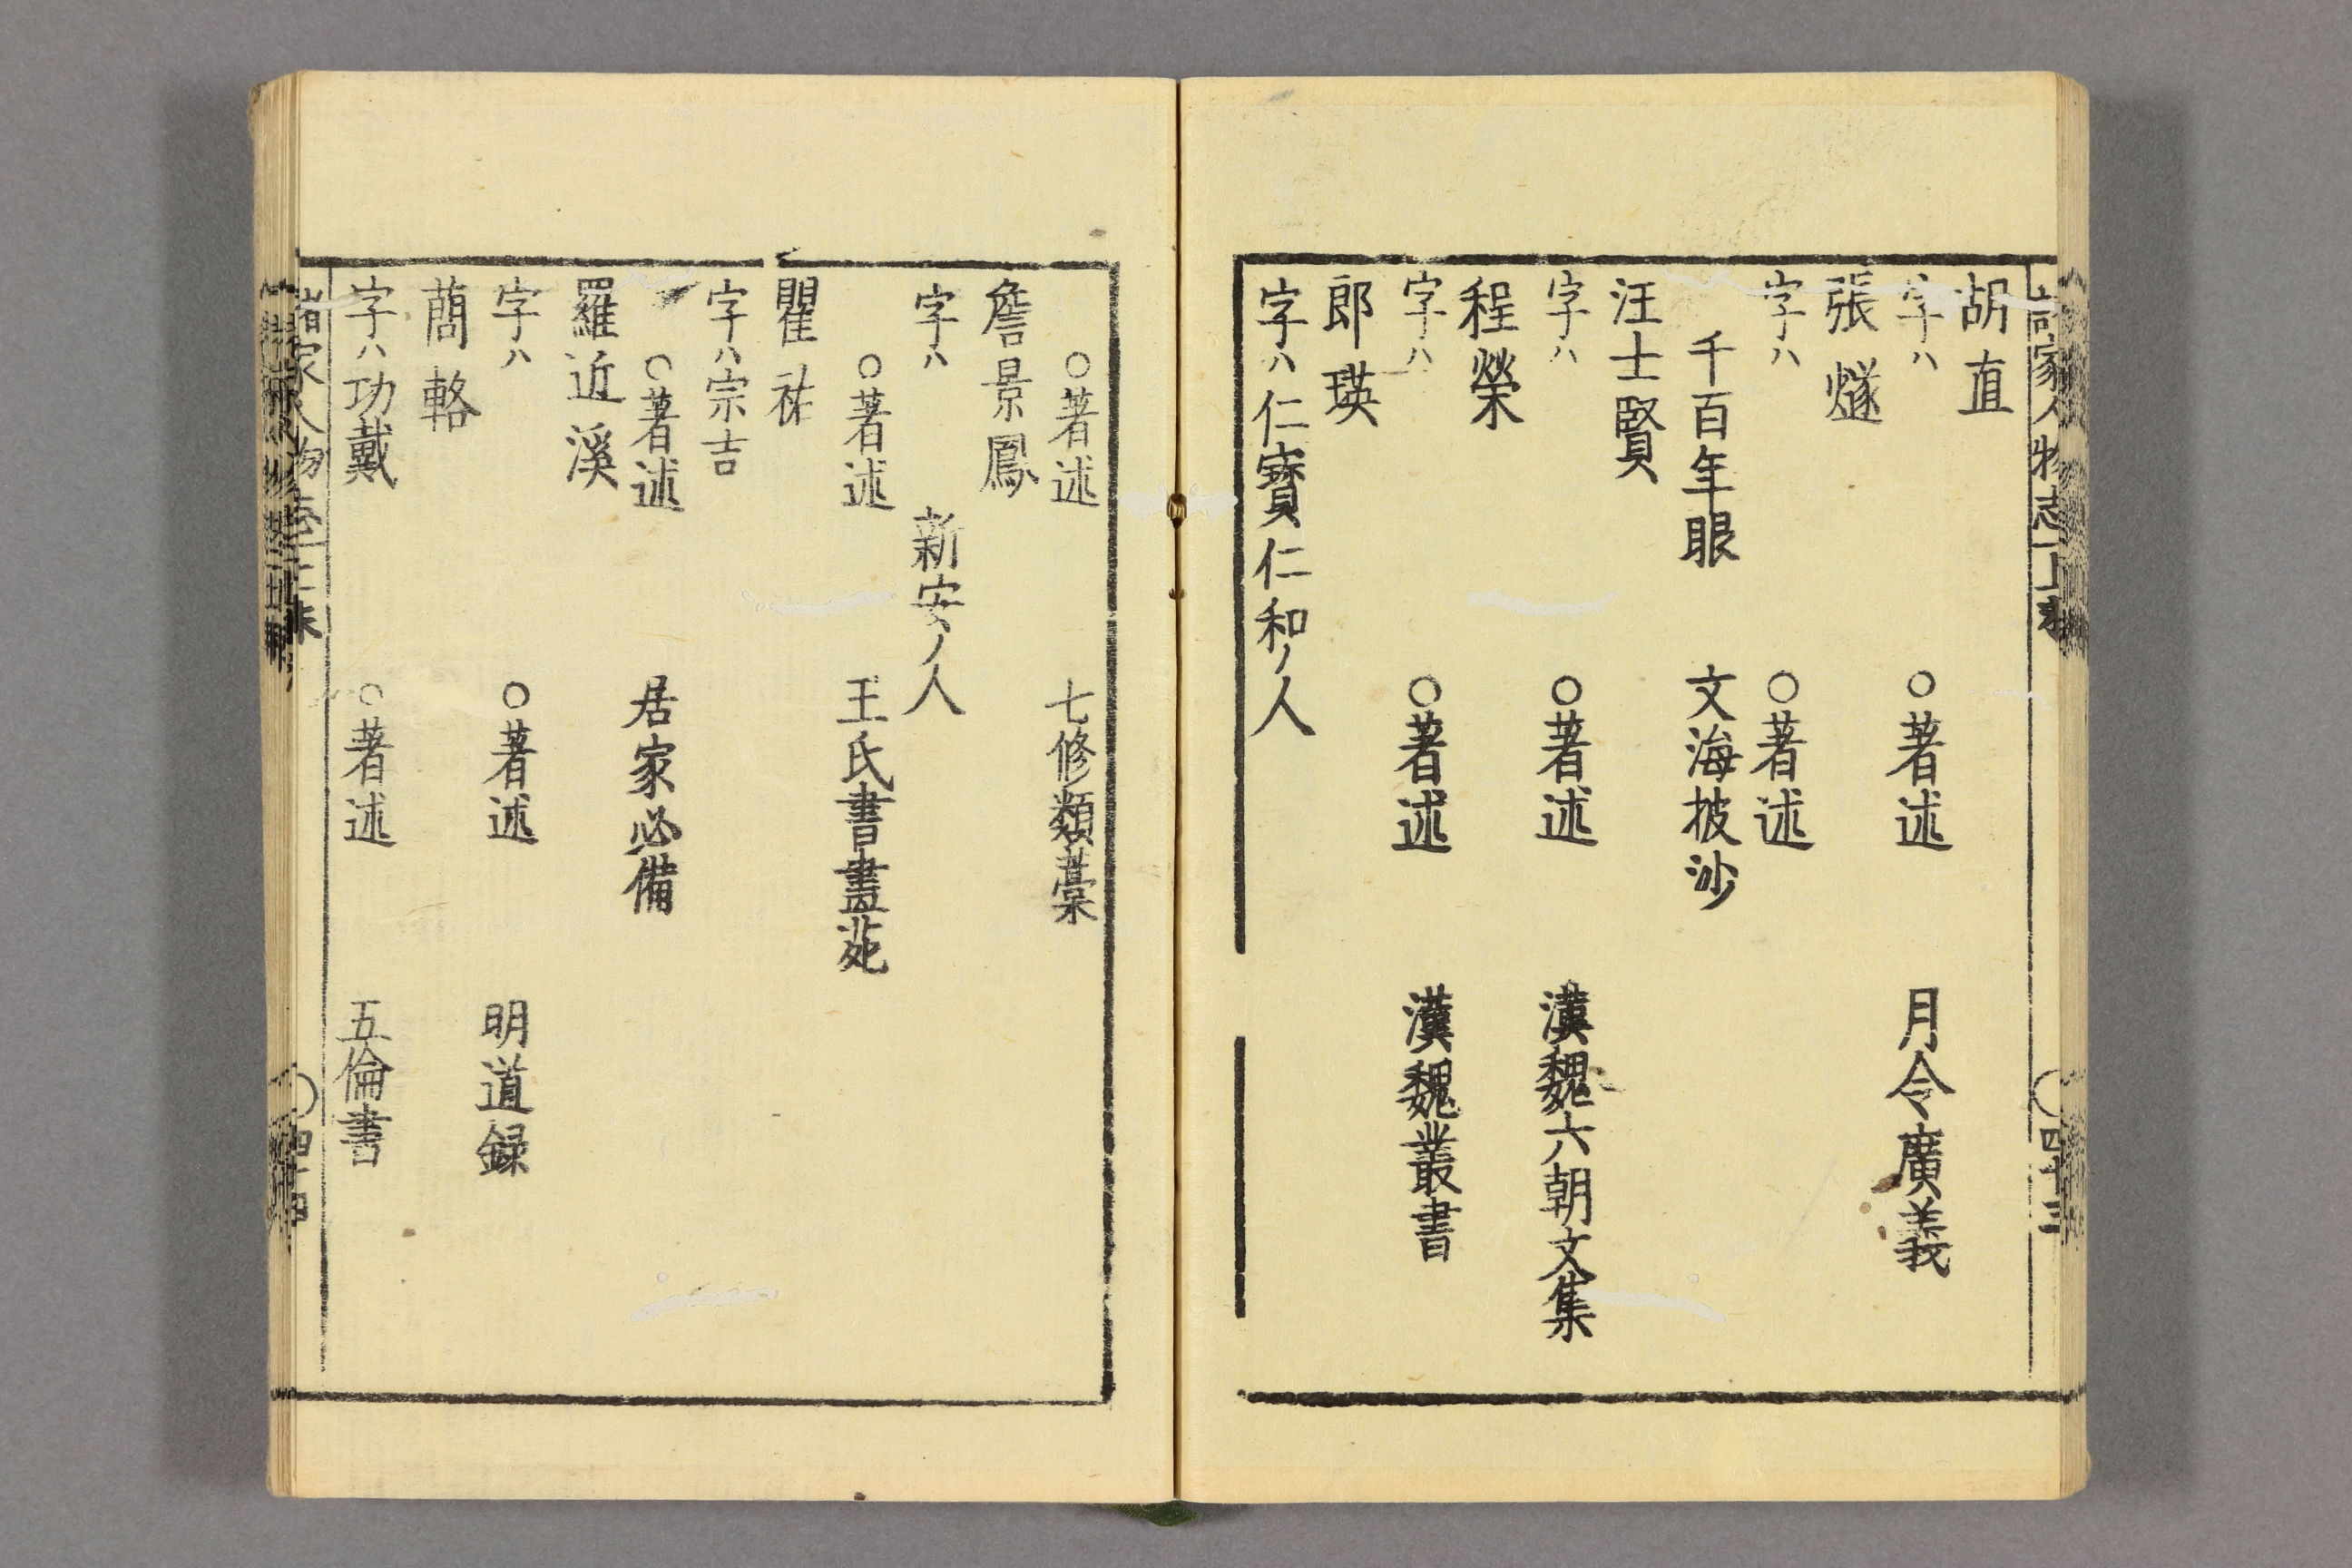 諸家人物志上 末 ○ 四十三
胡直
字ハ ○著述 月令廣義
張燧
字ハ ○著述
千百年眼 文海披沙
汪士賢
字ハ ○著述 漢魏六朝文集
程榮
字ハ ○著述 漢魏叢書
郎瑛
字ハ仁寶仁和ノ人
○著述 七修類藁
詹景鳳
字ハ 新安ノ人
○著述 王氏書畫苑
瞿祐
字ハ宗吉
○著述 居家必備
羅近溪
字ハ ○著述 明道録
蕳輅
字ハ功戴 ○著述 五倫書
諸家人物志上 末 ○ 四十四